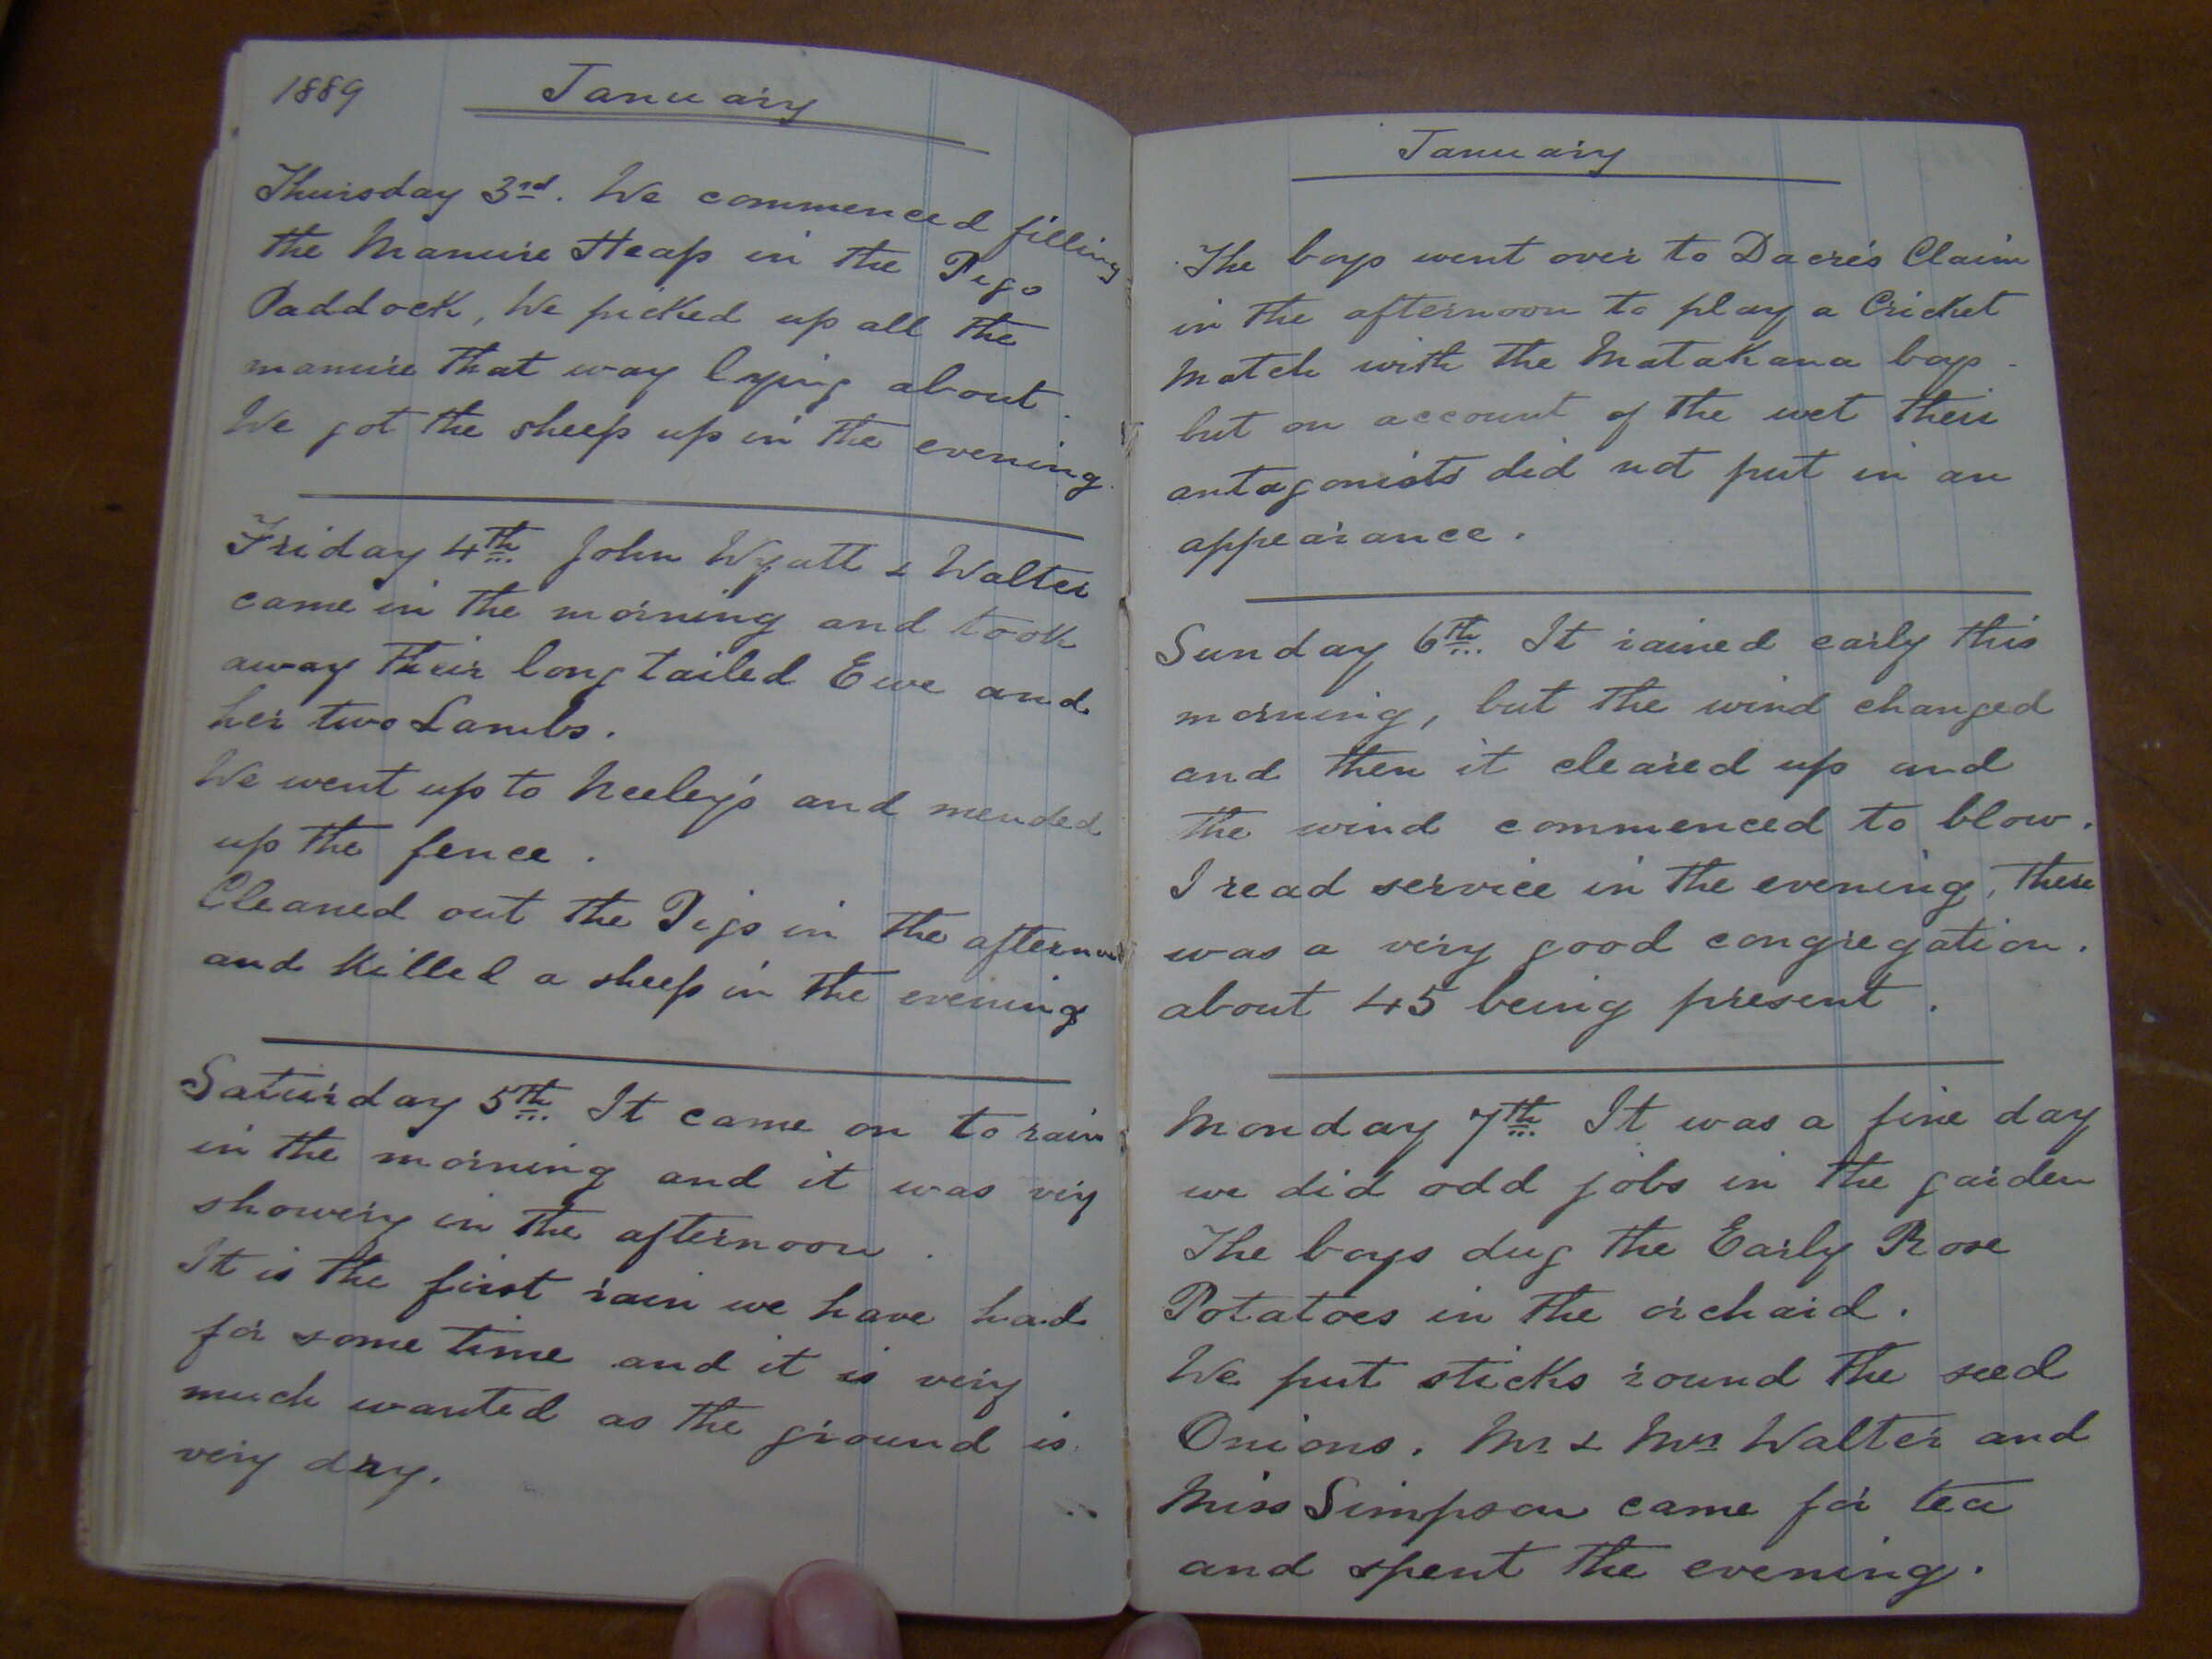 1889 January
Thursday 3rd. We commenced filling
the Manure Heap in the Pigs
Paddock, We picked up all the
manure that way lying about.
We got the sheep up in the evening.
Friday 4th John Wyatt & Walter
came in the morning and took
away their long tailed Ewe and
her two Lambs.
We went up to Neeley's and mended
up the fence.
Cleaned out the Pigs in the afternoon
and Killed a sheep in the evening
Saturday 5th It came on to rain
in the morning and it was very
showery in the afternoon.
It is the first rain we have had
for some time and it is very
much wanted as the ground is
very dry.
January
The boys went over to Dacre's Claim
in the afternoon to play a Cricket
Match with the MataKana boys -
but on account of the wet their
antagonists did not put in an
appearance.
Sunday 6th It rained early this
morning, but the wind changed
and then it cleared up and
the wind commenced to blow.
I read service in the evening, there
was a very good congregation.
about 45 being present.
Monday 7th It was a fine day
we did odd jobs in the garden
The boys dug the Early Rose
Potatoes in the orchard.
We put sticks round the seed
Onions. Mr & Mrs Walter and
Miss Simpson came for tea
and spent the evening.